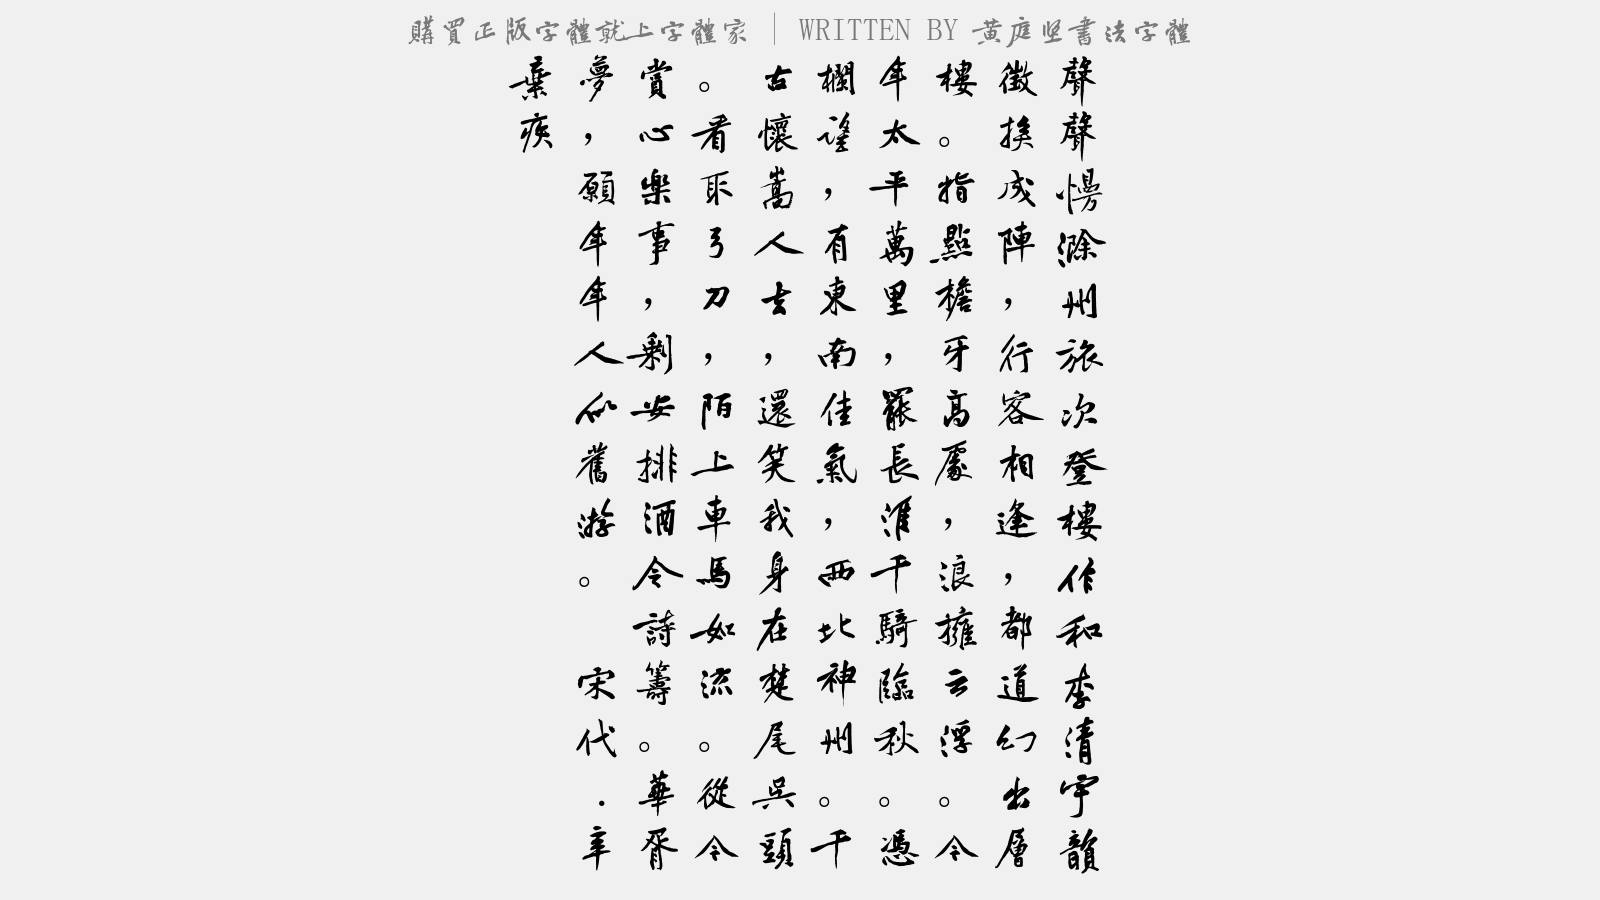 購買正版字體就上字體家 | WRITTEN BY 黄庭坚書法字體
聲聲慢滁州旅次登樓作和李清宇韻
徵挨成陣，行客相逢，都道幻出層
樓。指點檐牙高處，浪擁云浮。今
年太平萬里，罷長淮千騎臨秋。憑
欄望，有東南佳氣，西北神州。千
古懷嵩人去，還笑我身在楚尾吳頭
。看取弓刀，陌上車馬如流。從今
賞心樂事，剩安排酒令詩籌。華胥
夢，願年年人似舊游。 宋代.辛
棄疾